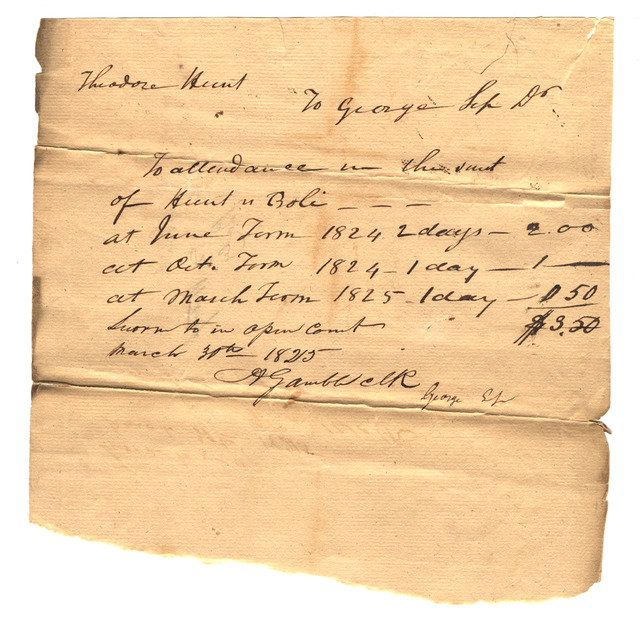 Theodore Hunt
To George Sip Dr
To attendance in the suit
of Hunt v Bobi - - -
at June Term 1824. 2 days - 2.00
at Oct. Term 1824 - 1 day - 1 —
at March Term 1825 - 1 day - 0 50
Sworn to in open court $3.50
March 30th 1825
A Gamble clk
George